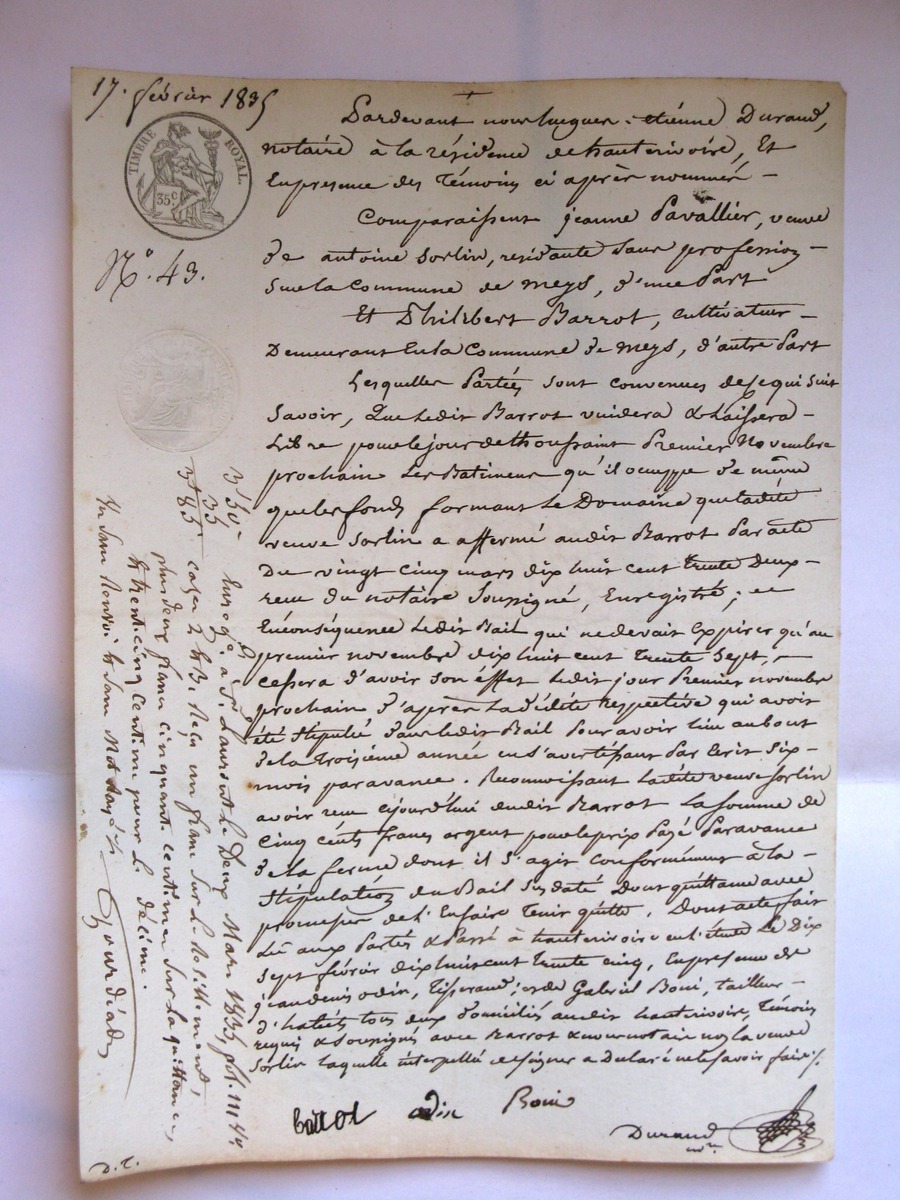 17. février 1835
TIMBRE ROYAL.
35c
N°. 43.
Pardevant nous hugues-etiènne Durand,
notaire à la résidence de hauterivoire, Et
En presence des Témoins ci après nommés
Comparaissent jeanne Pavallier, veuve
de antoine Sorlin, residante Sans profession
Sur la Commune de meys, d'une Part
Et Philibert Barrot, Cultivateur
Demeurant En la Commune de meys, d'autre Part
Lesquelles Parties sont convenues de ce qui suit
Savoir, Que Ledit Barrot vuidera & Laissera
Libre pour le jour de thoussaint Premier Novembre
prochain Les Batimens qu'il occuppe de même
que les fonds formant Le Domaine que ladite
veuve Sorlin a affermé audit Barrot Par acte
Du vingt cinq mars dix huit cent trente Deux
recu du notaire Soussigné, Enregistré;
En conséquence Ledit Bail qui ne devait Expirer qu'au
premier novembre dix huit cent Trente Sept,
cessera d'avoir son éffet Ledit jour Premier novembre
prochain d'après La dédite respective qui avoit
été Stipulée dans ledit Bail Pour avoir lieu au bout
de la troisième année en s'avertissant Par Ecrit Six
mois par avance. Reconnaissant ladite veuve Sorlin
avoir recu cejourd'hui dudit Barrot La somme de
Cinq Cents francs argent pour le prix Payé Paravance
de la ferme dont il s'agit conformément à la
Stipulation du Bail Susdaté Dont quittance avec
promesse de l'En faire Tenir quitte. Dont acte fait
Lû aux Parties & Passé à hauterivoire en l'étude Le Dix
Sept février dix huit cent Trente cinq, En presence de
jean denis odin, Tisserand; et de Gabriel Boni, tailleur
d'habits tous deux domiciliés audit hauterivoire, Témoins
requis & Soussignés avec Barrot & nous notaire non la veuve
Sorlin laquelle interpellée de signer a declaré ne le savoir faire
barrot odin Boni
Durand
nre
D.E.
3f 50c
35
3f 85c
Enregé à St Laurent le Deux Mars 1835, fol. 111 Vo
case 2 & 3. Reçu un franc sur le Résiliment,
plus deux francs cinquante centimes sur la quittance,
& trente cinq centimes pour le décime.
Un sans Renvoi & sans Mot rayé